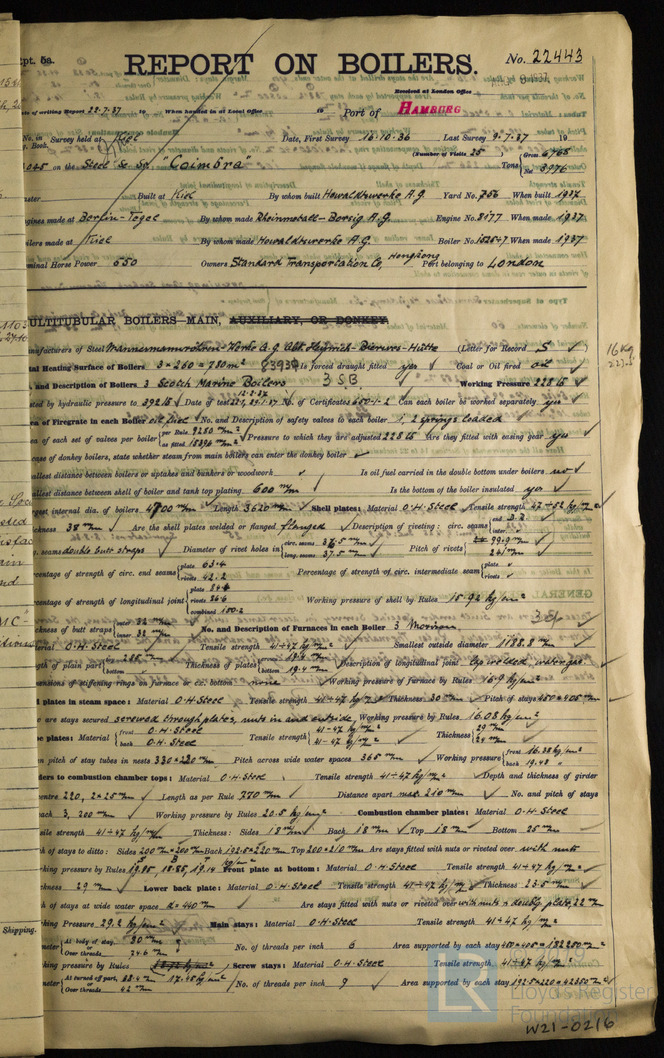 pt. 5a.
REPORT ON BOILERS.
No. 22443
Received at London Office
Date of writing Report 22.7.37 When handed in at Local Office Port of HAMBURG
No. in Survey held at Kiel Date, First Survey 16-10-36 Last Survey 9-7-37 19
Book. (Number of Visits 25)
on the Steel Sc. Sr. "Coimbra" Tons Gross 6768 Net 3976
Built at Kiel By whom built Howaldtswerke A.G. Yard No. 756 When built 1937
Engines made at Berlin-Tegel By whom made Rheinmetall-Borsig A.G. Engine No. 8177 When made 1937
Boilers made at Kiel By whom made Howaldtswerke A.G. Boiler No. When made 1937
Nominal Horse Power 650 Owners Standard Transportation Co, Hongkong Port belonging to London
MULTITUBULAR BOILERS—MAIN, AUXILIARY, OR DONKEY.
Manufacturers of Steel Mannesmannröhren-Werke A.G. Abt. Heinrich-Bierwes-Hütte (Letter for Record S)
16 Kg
Total Heating Surface of Boilers 3 × 260 = 780 m² Is forced draught fitted yes Coal or Oil fired oil
No. and Description of Boilers 3 Scotch Marine Boilers 3 SB Working Pressure 228 lb
Tested by hydraulic pressure to 392 lb Date of test No. of Certificates 650-1-2 Can each boiler be worked separately yes
Area of Firegrate in each Boiler oil fuel No. and Description of safety valves to each boiler 1, 2 springs loaded
Area of each set of valves per boiler per Rule 9280 mm² as fitted 15394 mm² Pressure to which they are adjusted 228 lb Are they fitted with easing gear yes
In case of donkey boilers, state whether steam from main boilers can enter the donkey boiler
Smallest distance between boilers or uptakes and bunkers or woodwork Is oil fuel carried in the double bottom under boilers no
Smallest distance between shell of boiler and tank top plating 600 m/m Is the bottom of the boiler insulated yes
Largest internal dia. of boilers 4700 mm Length 3620 mm Shell plates: Material O.H. Steel Tensile strength 47÷52 kg/m²
Thickness 38 m/m Are the shell plates welded or flanged flanged Description of riveting: circ. seams end D.R.
long. seams double butt straps Diameter of rivet holes in circ. seams 37.5 mm long. seams 37.5 mm Pitch of rivets 99.9 m/m 241 m/m
Percentage of strength of circ. end seams plate 63.4 rivets 42.2 Percentage of strength of circ. intermediate seam plate rivets
Percentage of strength of longitudinal joint plate 84.4 rivets combined Working pressure of shell by Rules 15.92 kg/cm²
Thickness of butt straps outer 32 mm inner 38 mm No. and Description of Furnaces in each Boiler 3 Morison
Material O.H. Steel Tensile strength 41÷47 kg/mm² Smallest outside diameter 1188.8 m/m
Length of plain part top bottom Thickness of plates crown 19.4 m/m bottom 19.4 m/m Description of longitudinal joint lap welded, watergas
Dimensions of stiffening rings on furnace or c.c. bottom none Working pressure of furnace by Rules 16.9 kg/cm²
End plates in steam space: Material O.H. Steel Tensile strength 41÷47 kg/m² Thickness 30 m/m Pitch of stays 450×405 mm
How are stays secured screwed through plates, nuts in and outside Working pressure by Rules 16.08 kg/cm²
Tube plates: Material front O.H. Steel back O.H. Steel Tensile strength 41-47 kg/m² 41-47 kg/m² Thickness 29 m/m 24 m/m
Mean pitch of stay tubes in nests 330×220 m/m Pitch across wide water spaces 365 m/m Working pressure front 16.28 kg/cm² back 19.48 "
Girders to combustion chamber tops: Material O.H. Steel Tensile strength 41÷47 kg/m² Depth and thickness of girder
at centre 220, 2×25 m/m Length as per Rule 770 m/m Distance apart max. 210 mm No. and pitch of stays
in each 3, 200 m/m Working pressure by Rules 20.5 kg/cm² Combustion chamber plates: Material O.H. Steel
Tensile strength 41÷47 kg/m² Thickness: Sides 18 m/m Back 18 m/m Top 18 m/m Bottom 25 mm
Pitch of stays to ditto: Sides 200×200 m/m Back 192.5×220 m/m Top 200×210 mm Are stays fitted with nuts or riveted over with nuts
Working pressure by Rules 19.85, 18.85, 19.14 kg/cm² Front plate at bottom: Material O.H. Steel Tensile strength 41÷47 kg/m²
Thickness 29 m/m Lower back plate: Material O.H. Steel Tensile strength 41÷47 kg/m² Thickness 23.5 m/m
Pitch of stays at wide water space 2×440 m/m Are stays fitted with nuts or riveted over with nuts & doubl. plate, 22 m/m
Working Pressure 29.2 kg/cm² Main stays: Material O.H. Steel Tensile strength 41÷47 kg/m²
Diameter At body of stay, 80 mm or Over threads 74.6 mm No. of threads per inch 6 Area supported by each stay 450×405=182250 m/m²
Working pressure by Rules Screw stays: Material O.H. Steel Tensile strength 41÷47 kg/m²
Diameter At turned off part, 38.4 mm or Over threads 42 mm 17.45 kg/cm² No. of threads per inch 9 Area supported by each stay 192.5×220=42350 m/m²
Shipping.
Lloyd's Register Foundation
W21-0216